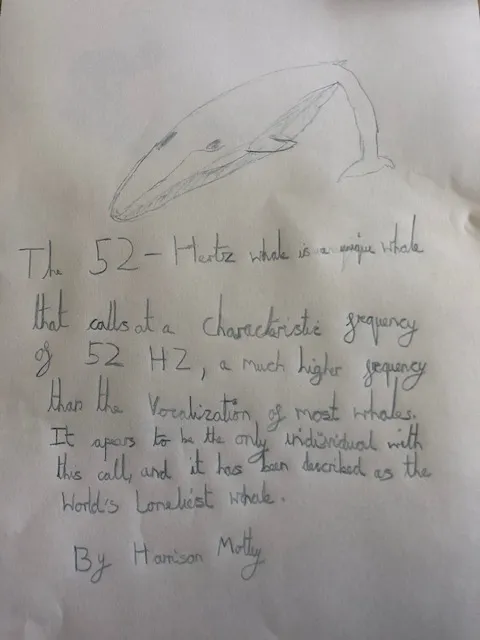 The 52 - Hertz whale is a unique whale
that calls at a characteristic frequency
of 52 HZ, a much higher frequency
than the Vocalization of most whales.
It apears to be the only individual with
this call, and it has been described as the
World's Loneliest whale.
By Harrison Motty